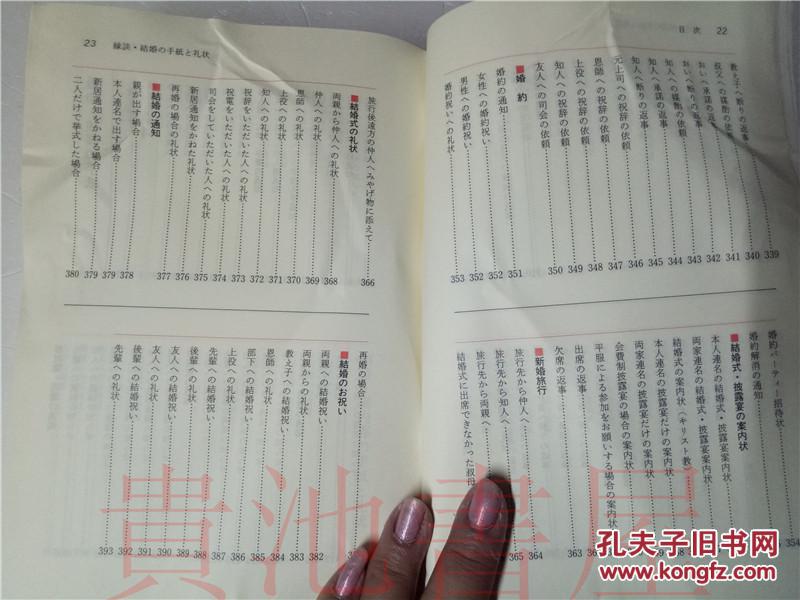 目次 22
教え子へ断りの返事 339
叔父への媒酌の依頼 340
おいへ承諾の返事 341
おいへ断りの返事 342
知人への媒酌の依頼 343
知人へ承諾の返事 344
知人へ断りの返事 345
元上司への祝辞の依頼 346
恩師への祝辞の依頼 347
上役への祝辞の依頼 348
知人への祝辞の依頼 349
友人への司会の依頼 350
■婚約
婚約の通知 351
女性への婚約祝い 352
男性への婚約祝い 352
婚約祝いへの礼状 353
婚約パーティー招待状 354
婚約解消の通知
■結婚式・披露宴の案内状
本人連名の結婚式・披露宴案内状
両家連名の結婚式・披露宴案内状
結婚式の案内状(キリスト教)
本人連名の披露宴だけの案内状
両家連名の披露宴だけの案内状
会費制披露宴の場合の案内状
平服による参加をお願いする場合の案内状
出席の返事 363
欠席の返事 363
■新婚旅行
旅行先から仲人へ 364
旅行先から知人へ 364
旅行先から両親へ 365
結婚式に出席できなかった叔母
23 縁談・結婚の手紙と礼状
旅行後遠方の仲人へみやげ物に添えて 366
■結婚式の礼状
両親から仲人への礼状 368
仲人への礼状 369
恩師への礼状 370
上役への礼状 371
知人への礼状 372
祝辞をいただいた人への礼状 373
祝電をいただいた人への礼状 374
司会をしていただいた人への礼状 375
新居通知をかねた礼状 376
再婚の場合の礼状 377
■結婚の通知
親が出す場合 378
本人連名で出す場合 379
新居通知をかねる場合 379
二人だけで挙式した場合 380
再婚の場合
■結婚のお祝い
両親への結婚祝い 382
両親からの礼状 383
教え子への結婚祝い 384
恩師への礼状 385
部下への結婚祝い 386
上役への礼状 387
先輩への結婚祝い 388
後輩への礼状 389
友人への結婚祝い 390
友人への礼状 391
後輩への結婚祝い 392
先輩への礼状 393
貴池書屋
孔夫子旧书网
www.kongfz.com